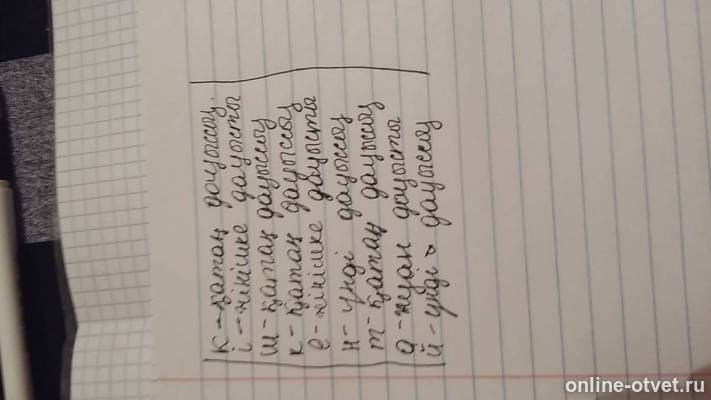 к – қатаң дауыссыз.
і – жіңішке дауысты
ш – қатаң дауыссыз
к – қатаң дауыссыз
е – жіңішке дауысты
н – үнді дауыссыз
т – қатаң дауыссыз
а – жуан дауысты
й – үнді дауыссыз
online-otvet.ru